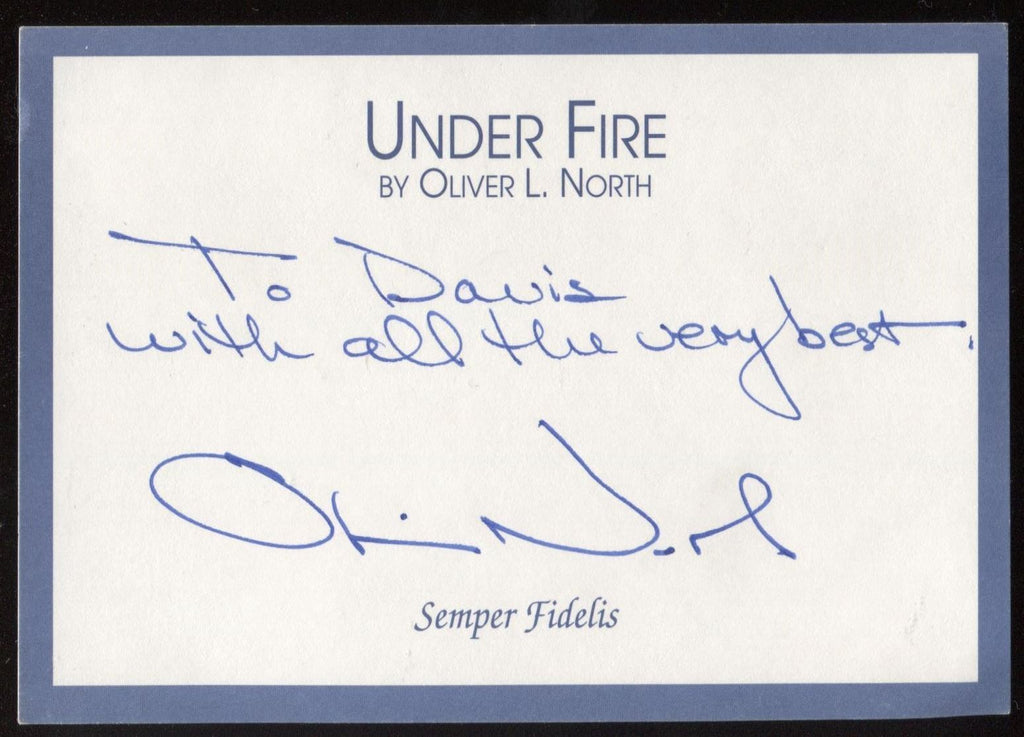 UNDER FIRE
BY OLIVER L. NORTH
To Davis
with all the very best.
Oliver North
Semper Fidelis